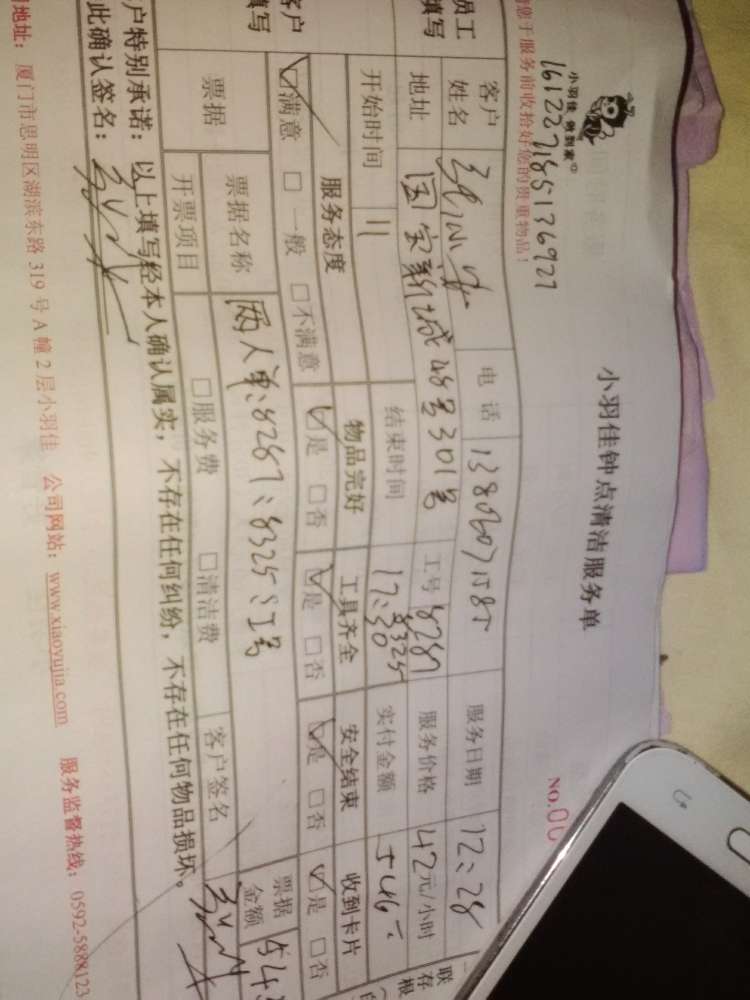 小羽佳 做到家
161227185136927
请您于服务前收拾好您的贵重物品!
小羽佳钟点清洁服务单
NO.00
员工填写
客户姓名 电话 服务日期 12:28
地址 国宝新城48号301号 工号 8287 8325 服务价格 42元/小时
开始时间 结束时间 17:30 实付金额 546元
客户填写
服务态度 物品完好 工具齐全 安全结束 收到卡片
☑满意 □一般 □不满意 ☑是 □否 ☑是 □否 ☑是 □否 ☑是 □否
票据 票据名称 两人单:8287:8325:工号 票据金额
开票项目 □服务费 □清洁费 客户签名
户特别承诺:以上填写经本人确认属实,不存在任何纠纷,不存在任何物品损坏。
此确认签名:
地址:厦门市思明区湖滨东路319号A幢2层小羽佳 公司网站:www.xiaoyujia.com 服务监督热线:0592-5888123
联存根